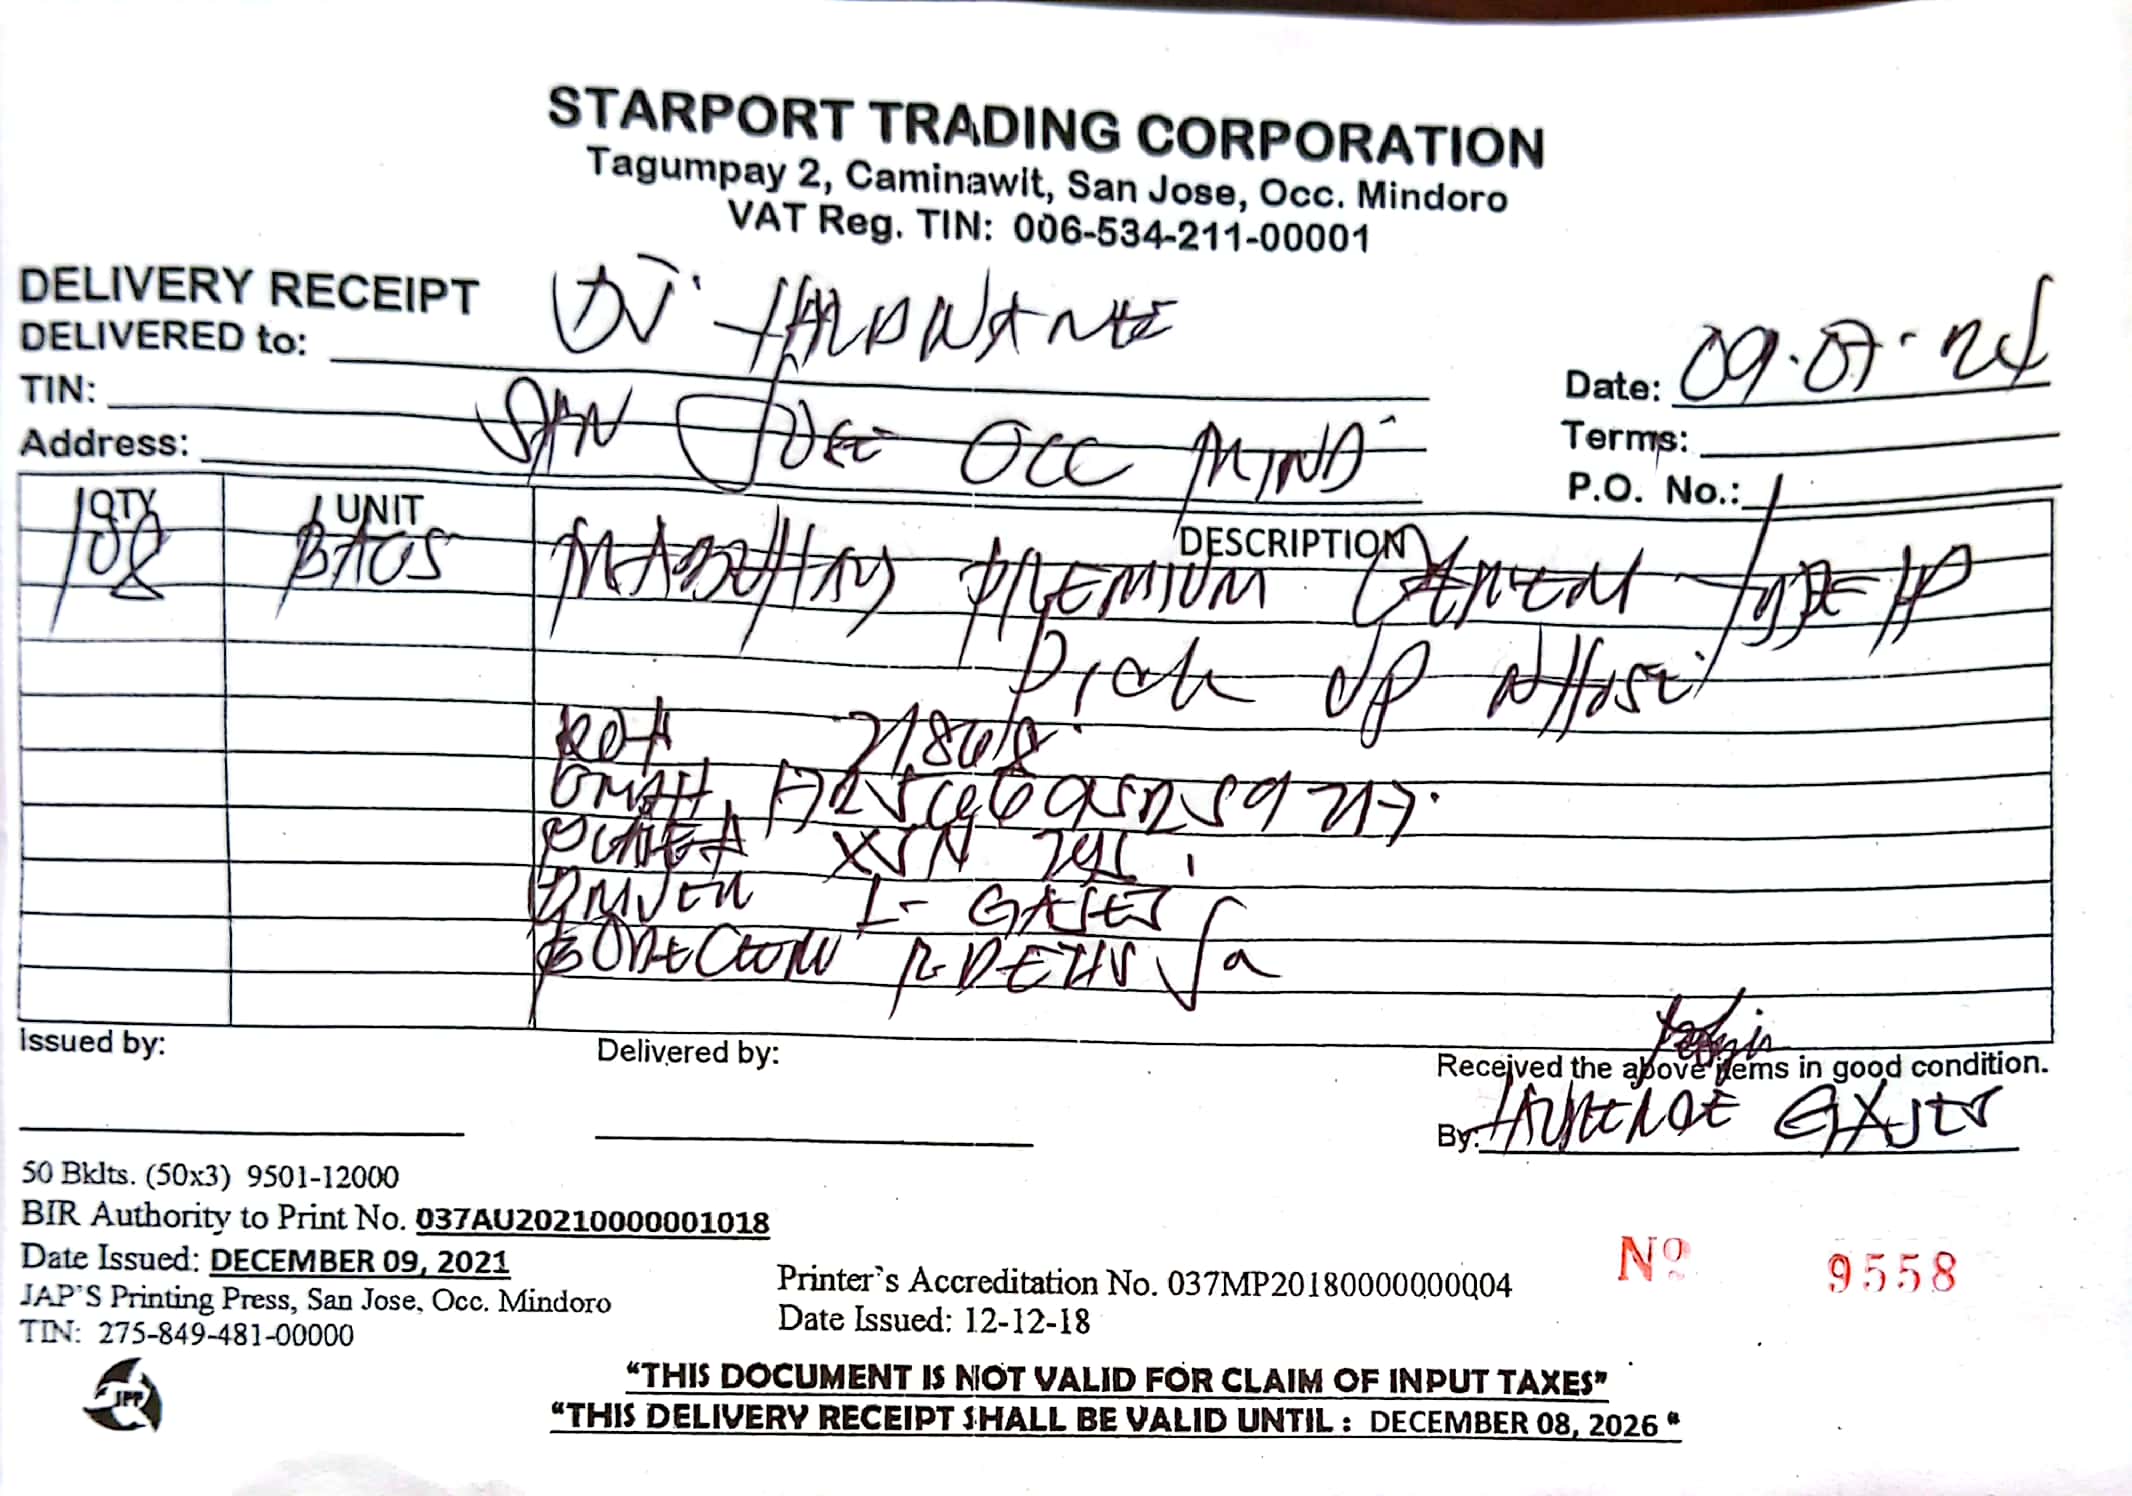 STARPORT TRADING CORPORATION
Tagumpay 2, Caminawit, San Jose, Occ. Mindoro
VAT Reg. TIN: 006-534-211-00001
DELIVERY RECEIPT
DELIVERED to: HARDWARE
TIN:
Address: SAN JOSE OCC MIND
Date: 09-07-24
Terms:
P.O. No.:
QTY UNIT DESCRIPTION
108 BAGS PREMIUM TYPE 1P
Pick UP
21868
PLATE #
DRIVER L- GAJES
Issued by:
Delivered by:
Received the above items in good condition.
By: GAJES
50 Bklts. (50x3) 9501-12000
BIR Authority to Print No. 037AU20210000001018
Date Issued: DECEMBER 09, 2021
JAP'S Printing Press, San Jose, Occ. Mindoro
TIN: 275-849-481-00000
Printer's Accreditation No. 037MP20180000000004
Date Issued: 12-12-18
Nº 9558
JPP
"THIS DOCUMENT IS NOT VALID FOR CLAIM OF INPUT TAXES"
"THIS DELIVERY RECEIPT SHALL BE VALID UNTIL : DECEMBER 08, 2026 "